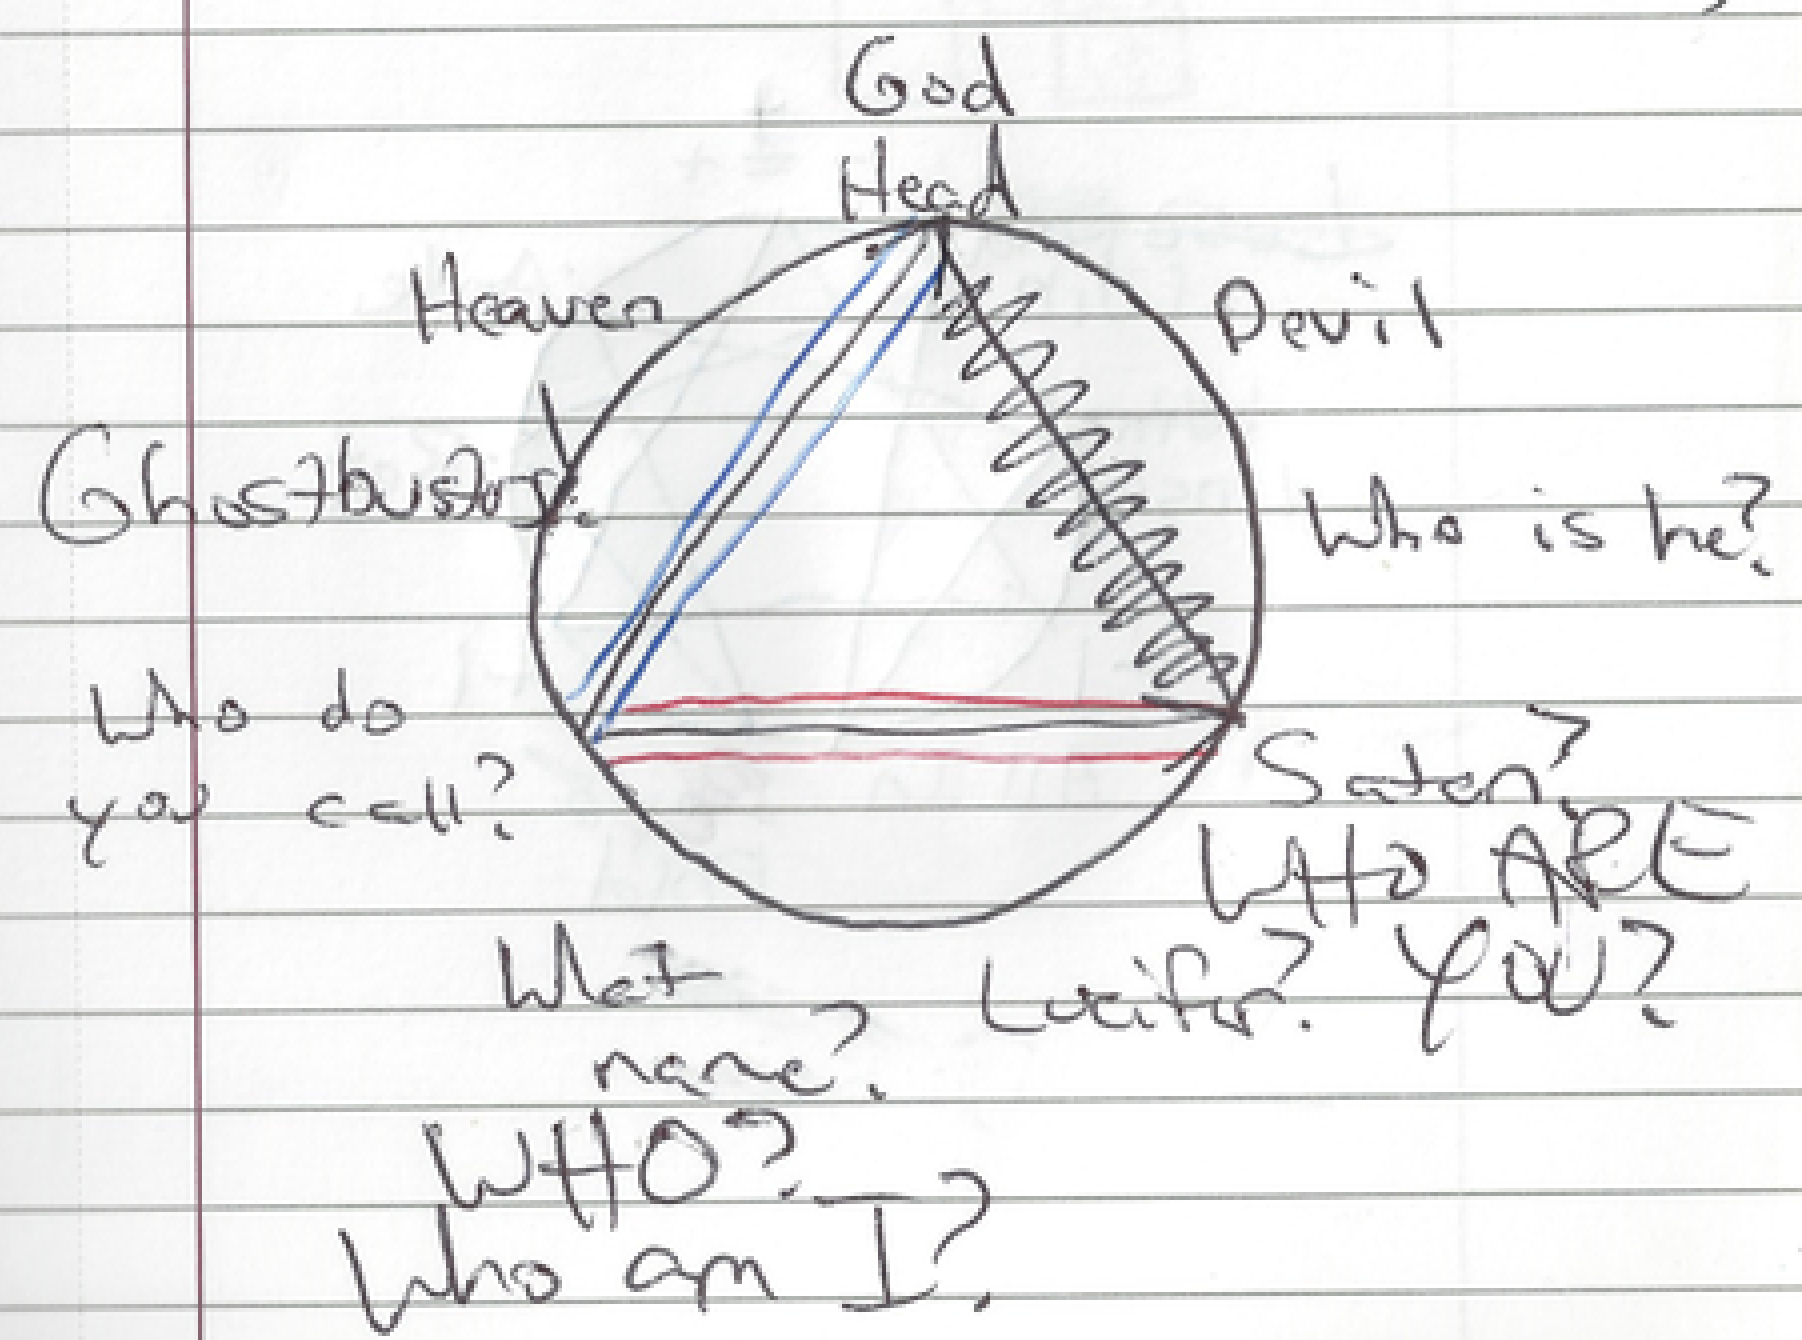 God
Head
Heaven
Devil
Ghostbusters!
Who is he?
Who do
you call?
Satan?
WHO ARE
YOU?
Lucifer?
What
name?
WHO?
Who am I?